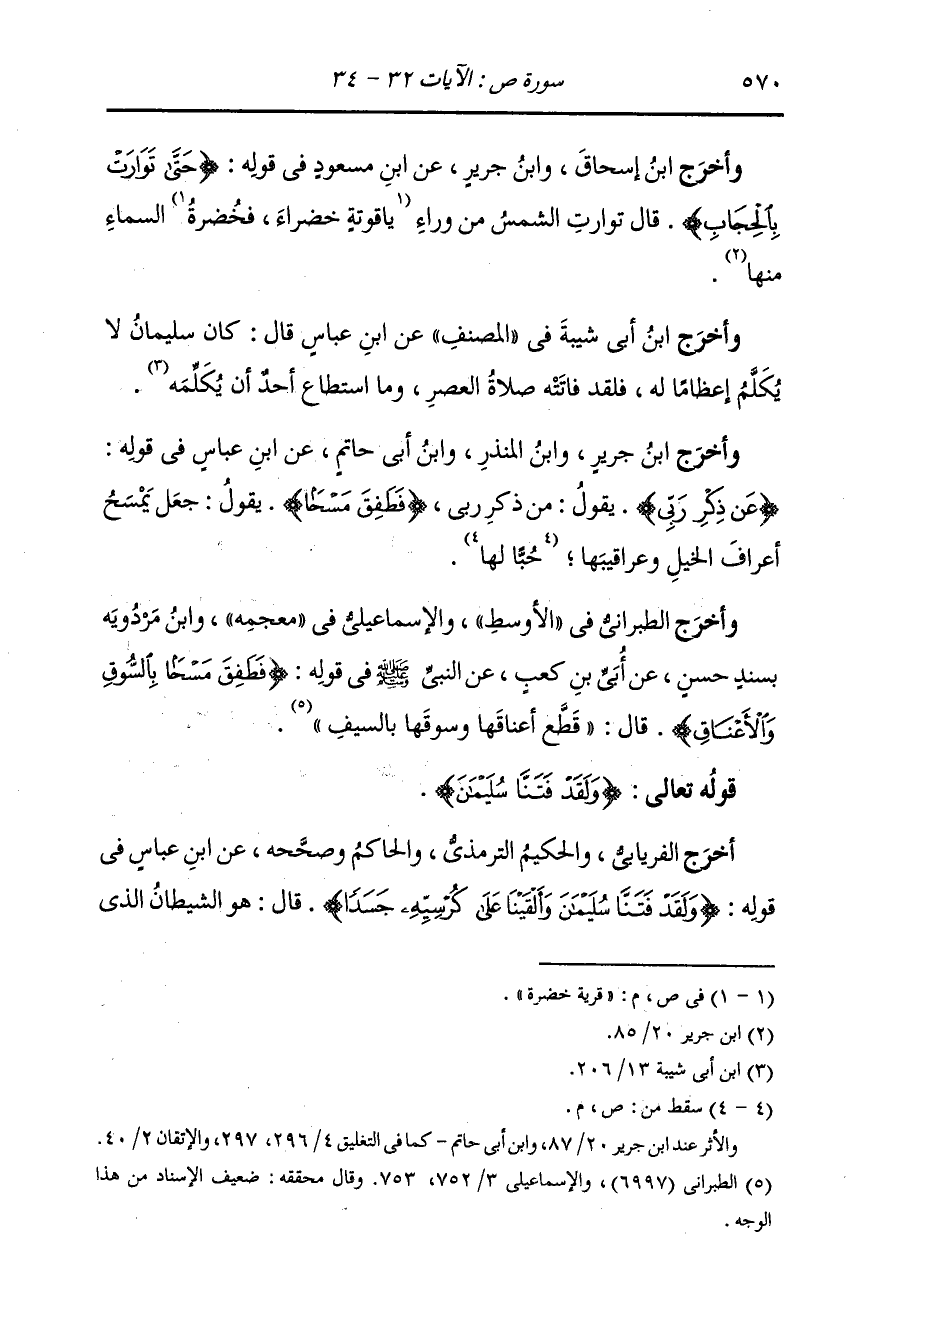 ٥٧٠
سورة ص : الآيات ٣٢ - ٣٤
وأخرَج ابنُ إسحاقَ ، وابنُ جريرٍ ، عن ابنِ مسعودٍ فى قولِه : ﴿حَتَّىٰ تَوَارَتْ
بِٱلْحِجَابِ﴾ . قال توارتِ الشمسُ من وراءِ (١ياقوتةٍ خضراءَ ، فخُضرةُ١) السماءِ
منها(٢) .
وأخرَج ابنُ أبى شيبةَ فى «المصنفِ» عن ابنِ عباسٍ قال : كان سليمانُ لا
يُكَلَّمُ إعظامًا له ، فلقد فاتَتْه صلاةُ العصرِ ، وما استطاع أحدٌ أن يُكَلِّمَه(٣) .
وأخرَج ابنُ جريرٍ ، وابنُ المنذرِ ، وابنُ أبى حاتمٍ ، عن ابنِ عباسٍ فى قولِه :
﴿عَن ذِكْرِ رَبِّى﴾ . يقولُ : من ذكرِ ربى ، ﴿فَطَفِقَ مَسْحًا﴾ . يقولُ : جعَل يَمْسَحُ
أعرافَ الخيلِ وعراقيبَها ؛ (٤حُبًّا لها٤) .
وأخرَج الطبرانىُّ فى «الأوسطِ» ، والإسماعيلىُّ فى «معجمِه» ، وابنُ مَرْدُويَه
بسندٍ حسنٍ ، عن أُبَىِّ بنِ كعبٍ ، عن النبىِّ ﷺ فى قولِه : ﴿فَطَفِقَ مَسْحًا بِٱلسُّوقِ
وَٱلْأَعْنَاقِ﴾ . قال : « قَطَّع أعناقَها وسوقَها بالسيفِ »(٥) .
قولُه تعالى : ﴿وَلَقَدْ فَتَنَّا سُلَيْمَٰنَ﴾ .
أخرَج الفريابىُّ ، والحكيمُ الترمذىُّ ، والحاكمُ وصحَّحه ، عن ابنِ عباسٍ فى
قولِه : ﴿وَلَقَدْ فَتَنَّا سُلَيْمَٰنَ وَأَلْقَيْنَا عَلَىٰ كُرْسِيِّهِۦ جَسَدًا﴾ . قال : هو الشيطانُ الذى
(١ - ١) فى ص ، م : « قرية خضرة » .
(٢) ابن جرير ٢٠/ ٨٥.
(٣) ابن أبى شيبة ١٣/ ٢٠٦.
(٤ - ٤) سقط من : ص ، م .
والأثر عند ابن جرير ٢٠/ ٨٧، وابن أبى حاتم - كما فى التغليق ٤/ ٢٩٦، ٢٩٧، والإتقان ٢/ ٤٠.
(٥) الطبرانى (٦٩٩٧) ، والإسماعيلى ٣/ ٧٥٢، ٧٥٣. وقال محققه : ضعيف الإسناد من هذا
الوجه .